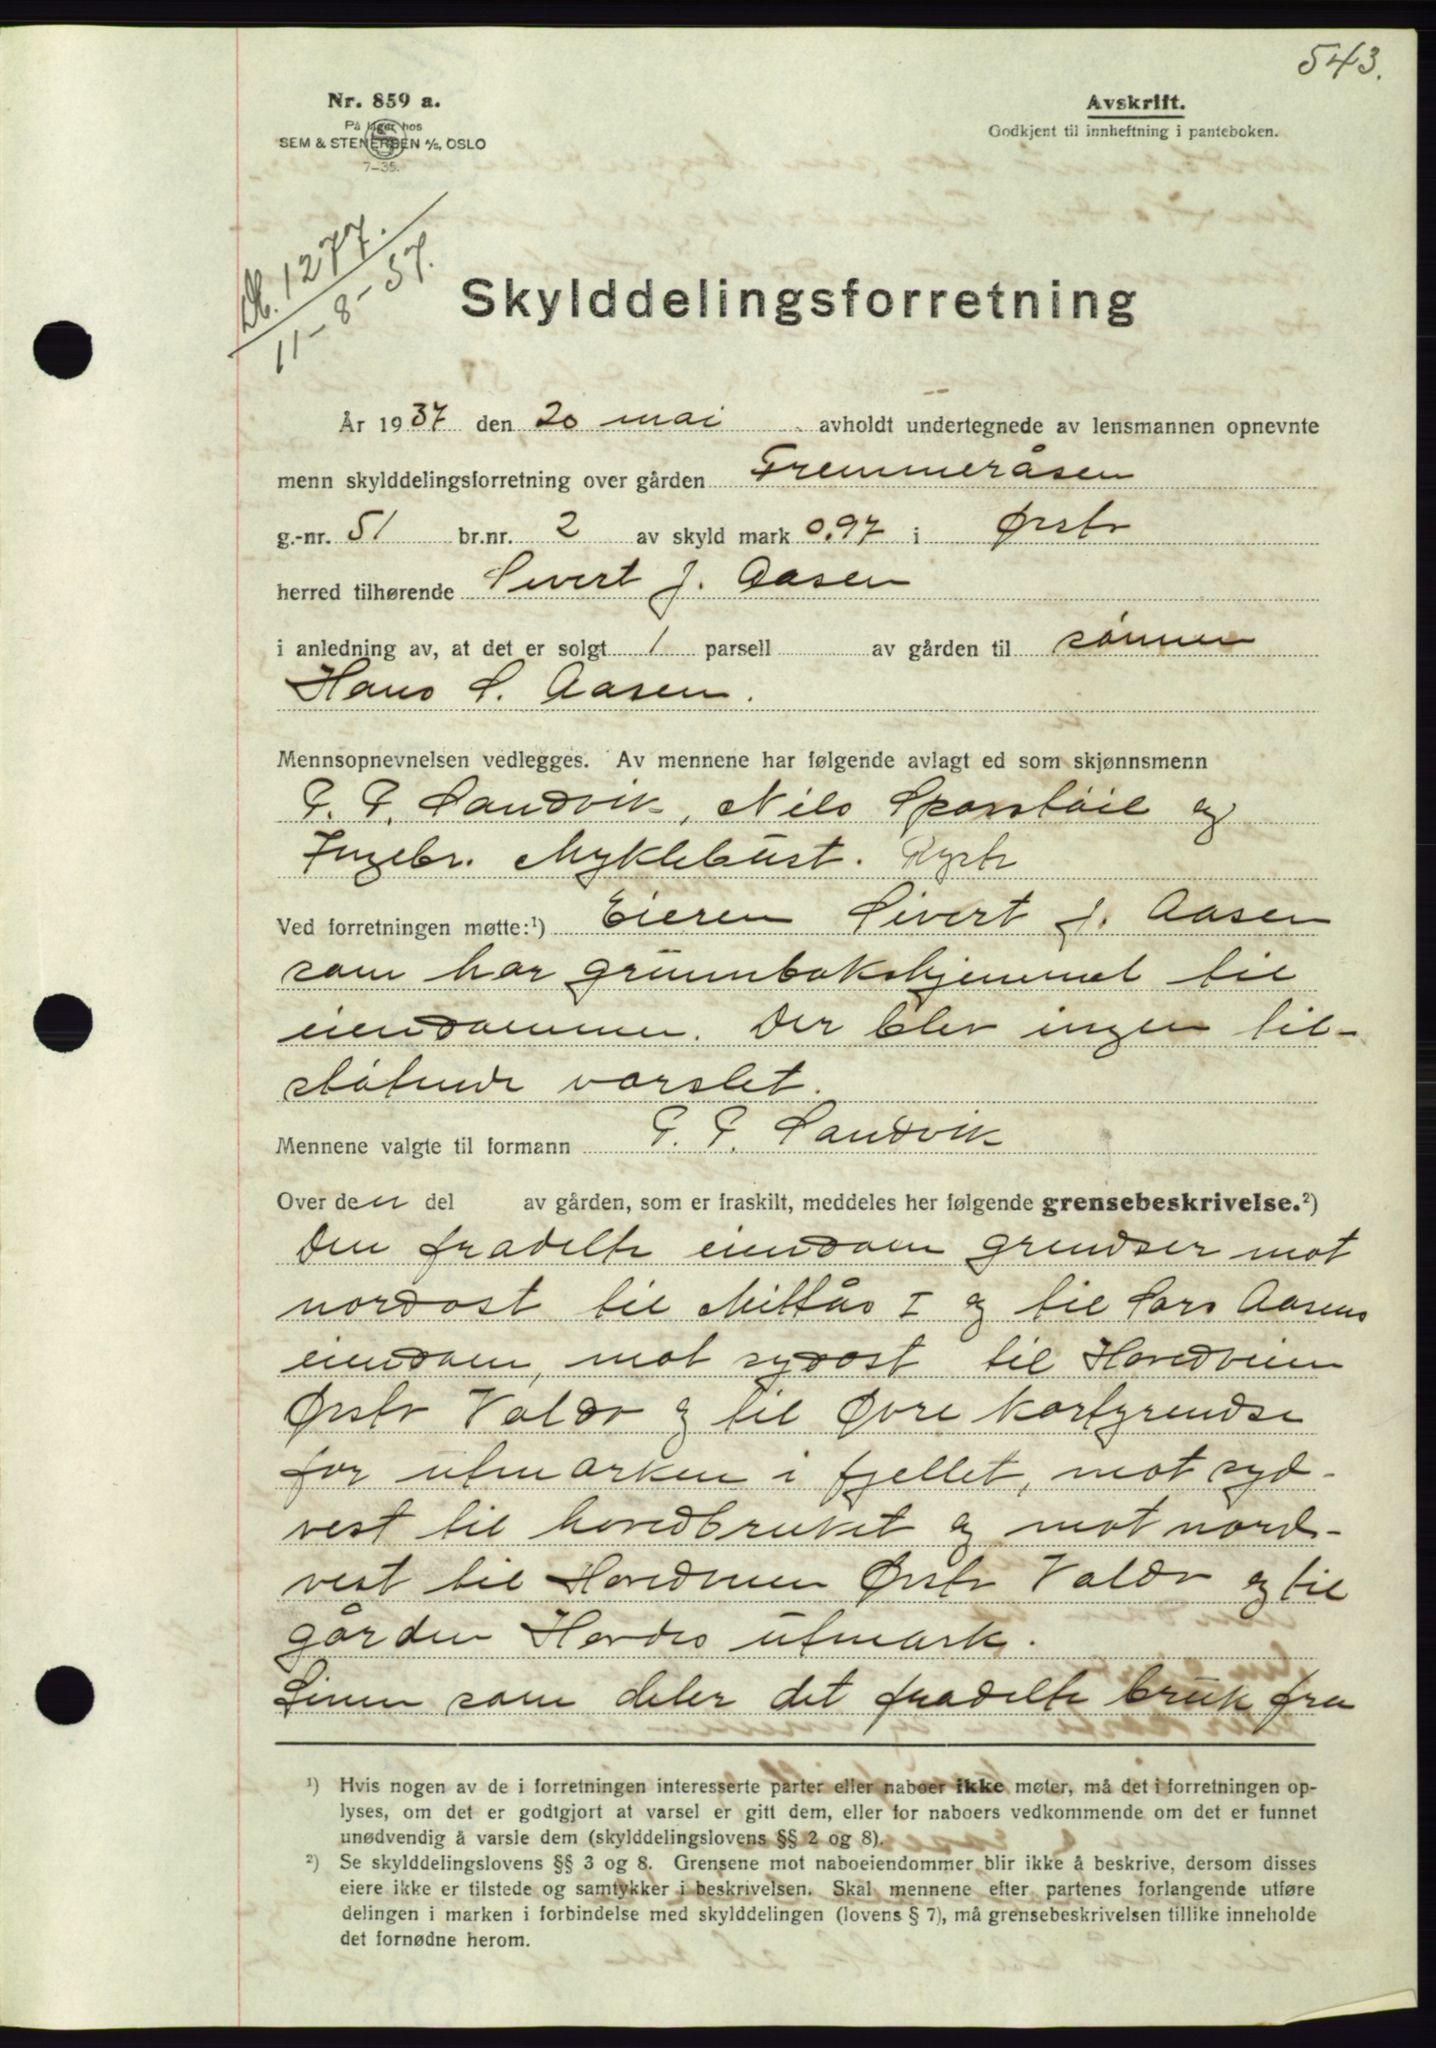 543.
Nr. 859 a.
På lager hos
SEM & STENERSEN A/S, OSLO
7-35.
Avskrift.
Godkjent til innheftning i panteboken.
Db. 1277.
11-8-37.
Skylddelingsforretning
År 1937 den 20 mai avholdt undertegnede av lensmannen opnevnte
menn skylddelingsforretning over gården Fremmeråsen
g.-nr. 51 br.nr. 2 av skyld mark 0.97 i Ørsta
herred tilhørende Sivert J. Aasen
i anledning av, at det er solgt 1 parsell av gården til sønnen
Hans S. Aasen.
Mennsopnevnelsen vedlegges. Av mennene har følgende avlagt ed som skjønnsmenn
P. P. Sandvik, Nils Sporstøil og
Ingebr. Myklebust.
Ved forretningen møtte:¹) Eieren Sivert J. Aasen
som har grunnbokshjemmel til
eiendommen. Der blev ingen til-
støtende varslet.
Mennene valgte til formann P. P. Sandvik
Over den del av gården, som er fraskilt, meddeles her følgende grensebeskrivelse.²)
Den fradelte eiendom grendser mot
nordost til Mittås I og til Lars Aasens
eiendom, mot sydost til Hovedveien
Ørsta Volda og til Øvre kartgrendse
for utmarken i fjellet, mot syd-
vest til hovedbruket og mot nord-
vest til Hovedveien Ørsta Volda og til
gården Hovdes utmark.
Linen som deler det fradelte bruk fra
¹) Hvis nogen av de i forretningen interesserte parter eller naboer ikke møter, må det i forretningen op-
lyses, om det er godtgjort at varsel er gitt dem, eller for naboers vedkommende om det er funnet
unødvendig å varsle dem (skylddelingslovens §§ 2 og 8).
²) Se skylddelingslovens §§ 3 og 8. Grensene mot naboeiendommer blir ikke å beskrive, dersom disses
eiere ikke er tilstede og samtykker i beskrivelsen. Skal mennene efter partenes forlangende utføre
delingen i marken i forbindelse med skylddelingen (lovens § 7), må grensebeskrivelsen tillike inneholde
det fornødne herom.